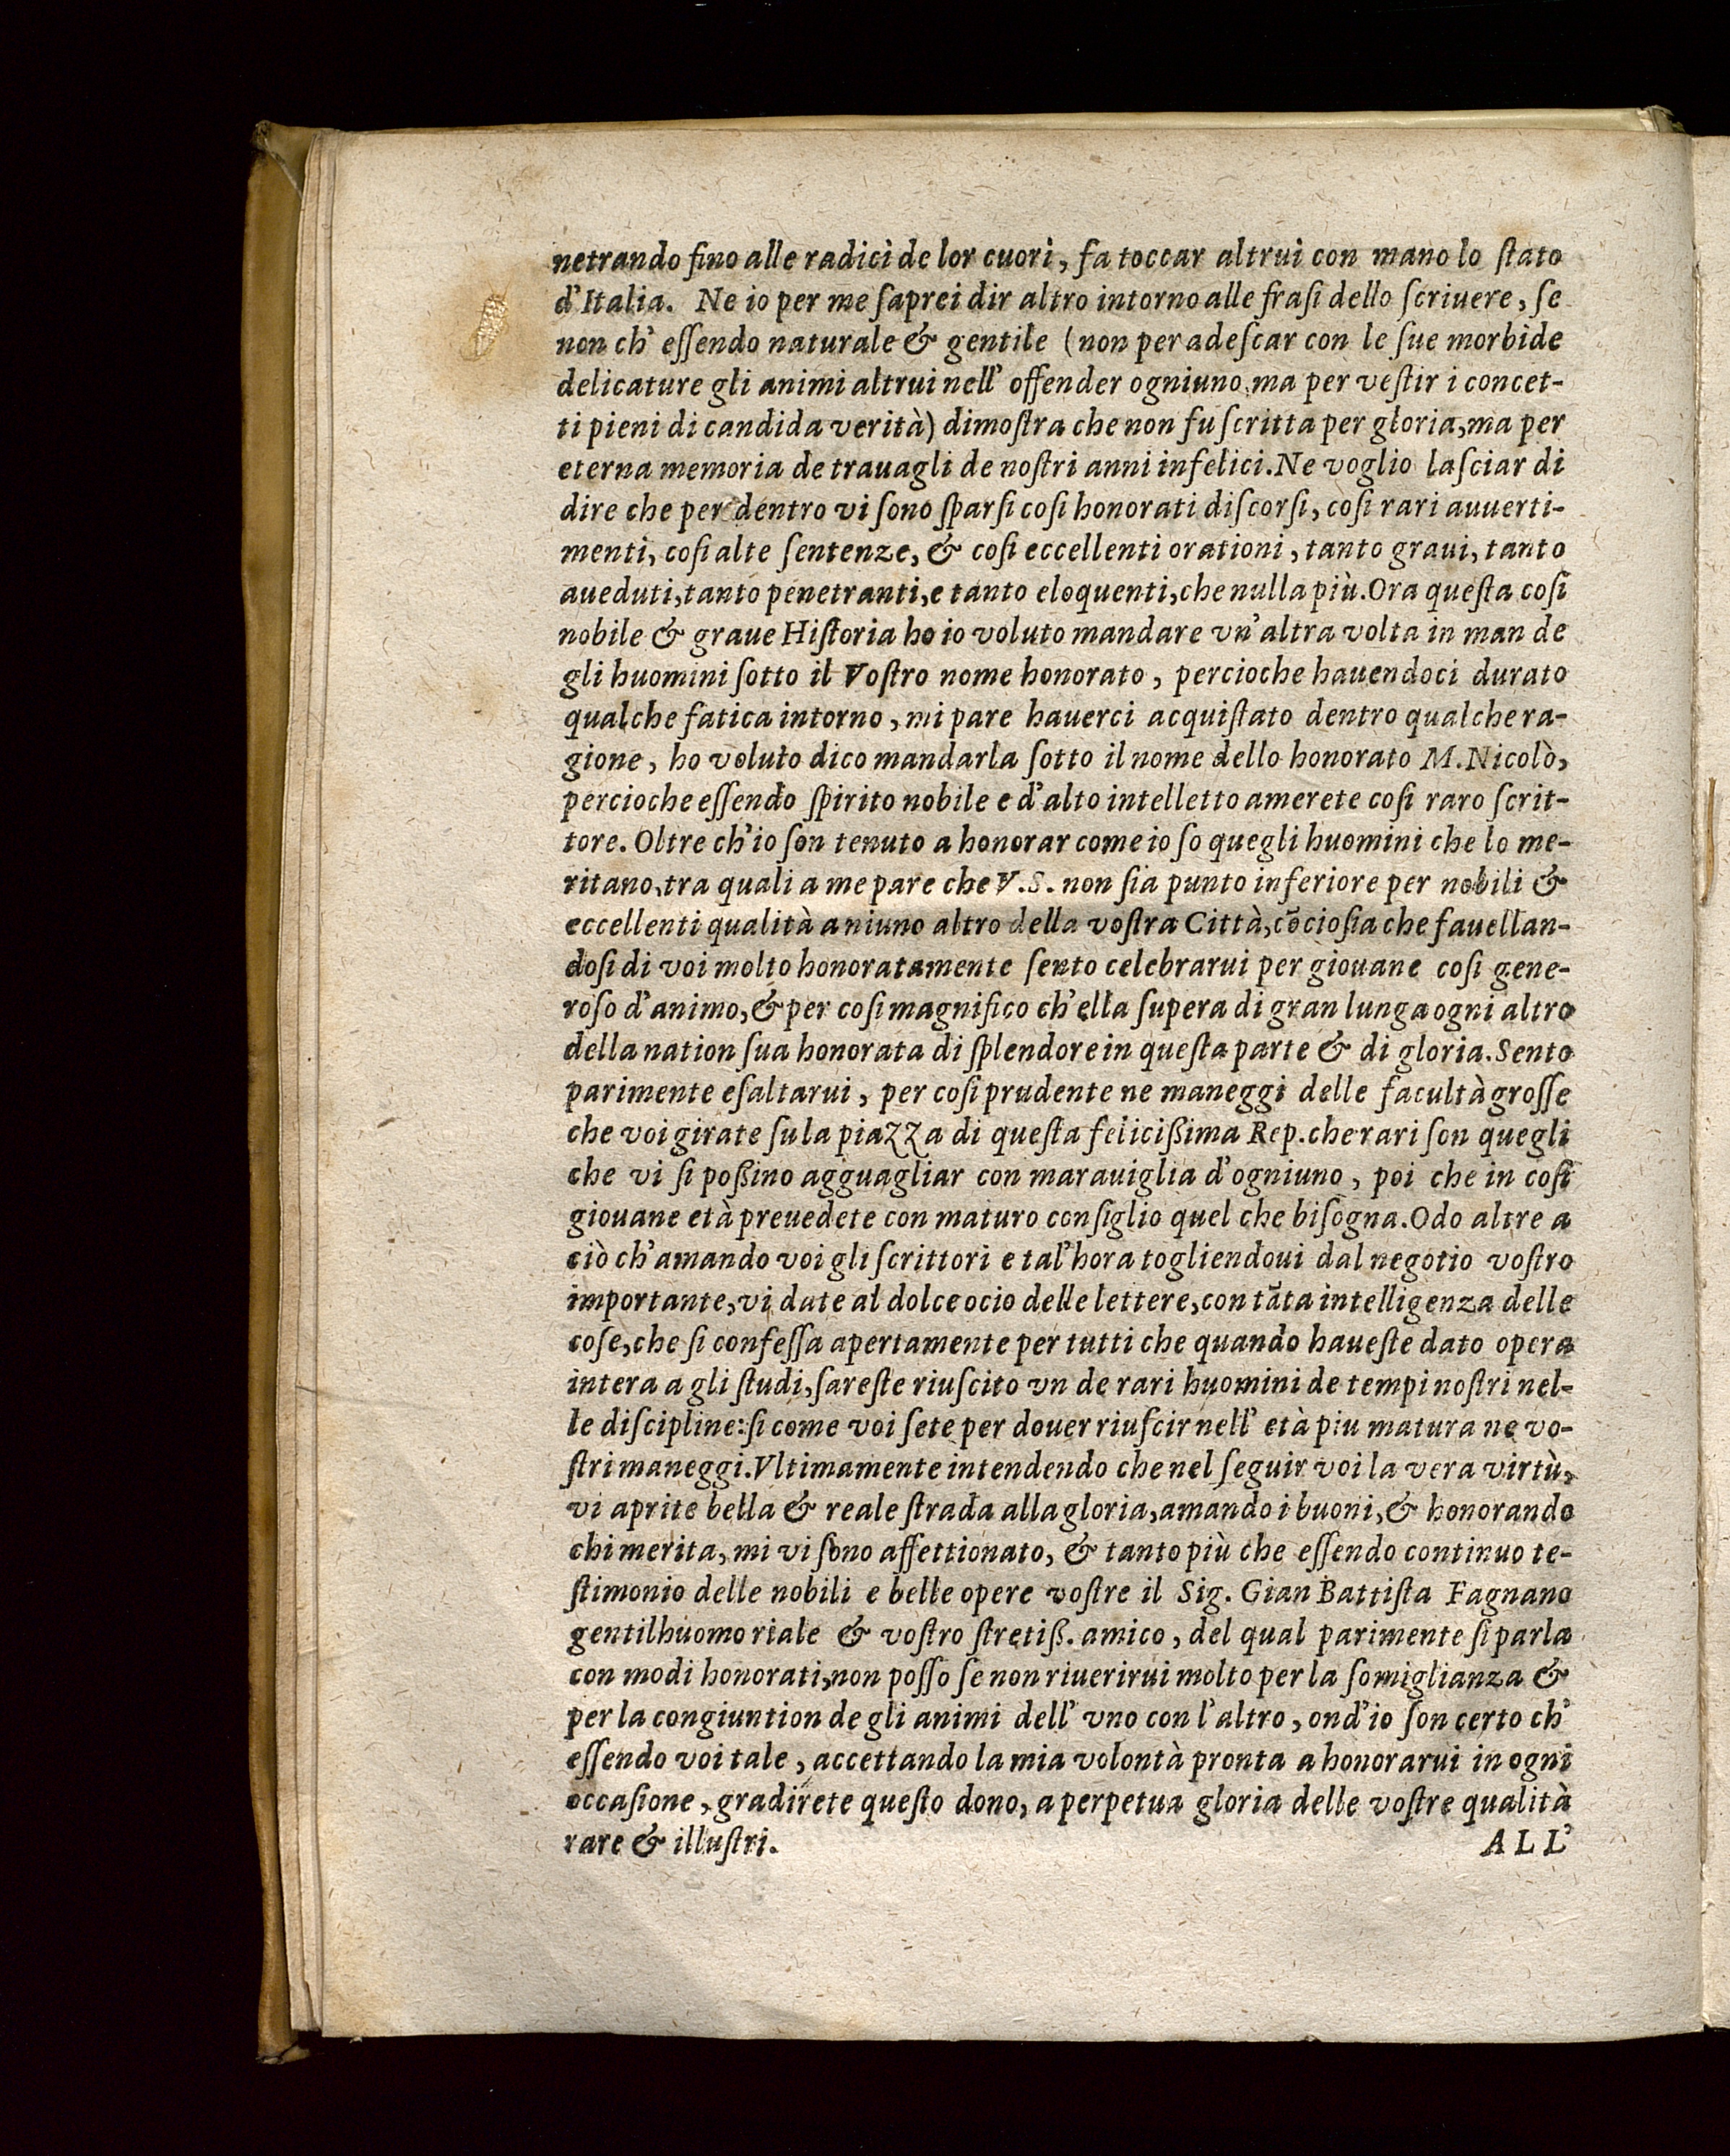 netrando fino alle radici de lor cuori, fa toccar altrui con mano lo ſtato
d'Italia. Ne io per me ſaprei dir altro intorno alle fraſi dello ſcriuere, ſe
non ch' eſſendo naturale & gentile (non per adeſcar con le ſue morbide
delicature gli animi altrui nell' offender ogniuno, ma per veſtir i concet-
ti pieni di candida verità) dimoſtra che non fu ſcritta per gloria, ma per
eterna memoria de trauagli de noſtri anni infelici. Ne voglio laſciar di
dire che per dentro vi ſono ſparſi coſi honorati diſcorſi, coſi rari auuerti-
menti, coſi alte ſentenze, & coſi eccellenti orationi, tanto graui, tanto
aueduti, tanto penetranti, e tanto eloquenti, che nulla più. Ora queſta coſi
nobile & graue Hiſtoria ho io voluto mandare vn'altra volta in man de
gli huomini ſotto il Voſtro nome honorato, percioche hauendoci durato
qualche fatica intorno, mi pare hauerci acquiſtato dentro qualche ra-
gione, ho voluto dico mandarla ſotto il nome dello honorato M. Nicolò,
percioche eſſendo ſpirito nobile e d'alto intelletto amerete coſi raro ſcrit-
tore. Oltre ch'io ſon tenuto a honorar come io ſo quegli huomini che lo me-
ritano, tra quali a me pare che V.S. non ſia punto inferiore per nobili &
eccellenti qualità a niuno altro della voſtra Città, cōcioſia che fauellan-
doſi di voi molto honoratamente ſento celebrarui per giouane coſi gene-
roſo d'animo, & per coſi magnifico ch'ella ſupera di gran lunga ogni altro
della nation ſua honorata di ſplendore in queſta parte & di gloria. Sento
parimente eſaltarui, per coſi prudente ne maneggi delle facultà groſſe
che voi girate ſu la piazza di queſta feliciſſima Rep. che rari ſon quegli
che vi ſi poſſino agguagliar con marauiglia d'ogniuno, poi che in coſi
giouane età preuedete con maturo conſiglio quel che biſogna. Odo altre a
ciò ch'amando voi gli ſcrittori e tal'hora togliendoui dal negotio voſtro
importante, vi date al dolce ocio delle lettere, con tāta intelligenza delle
coſe, che ſi confeſſa apertamente per tutti che quando haueſte dato opera
intera a gli ſtudi, ſareſte riuſcito vn de rari huomini de tempi noſtri nel-
le diſcipline: ſi come voi ſete per douer riuſcir nell' età piu matura ne vo-
ſtri maneggi. Vltimamente intendendo che nel ſeguir voi la vera virtù,
vi aprite bella & reale ſtrada alla gloria, amando i buoni, & honorando
chi merita, mi vi ſono affettionato, & tanto più che eſſendo continuo te-
ſtimonio delle nobili e belle opere voſtre il Sig. Gian Battiſta Fagnano
gentilhuomo riale & voſtro ſtretiſſ. amico, del qual parimente ſi parla
con modi honorati, non poſſo ſe non riuerirui molto per la ſomiglianza &
per la congiuntion de gli animi dell' vno con l'altro, ond'io ſon certo ch'
eſſendo voi tale, accettando la mia volontà pronta a honorarui in ogni
occaſione, gradirete queſto dono, a perpetua gloria delle voſtre qualità
rare & illuſtri.
ALL'